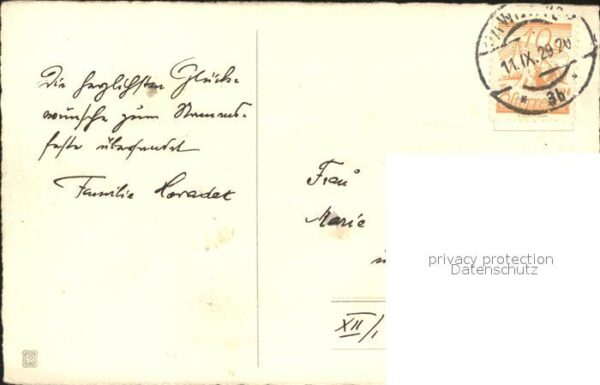 Die herzlichsten Glück-
wünsche zum Namens-
feste übersendet
Familie Horadek
Frau
Marie
XII/1
10
11.IX.29.20
* 3b *
privacy protection
Datenschutz